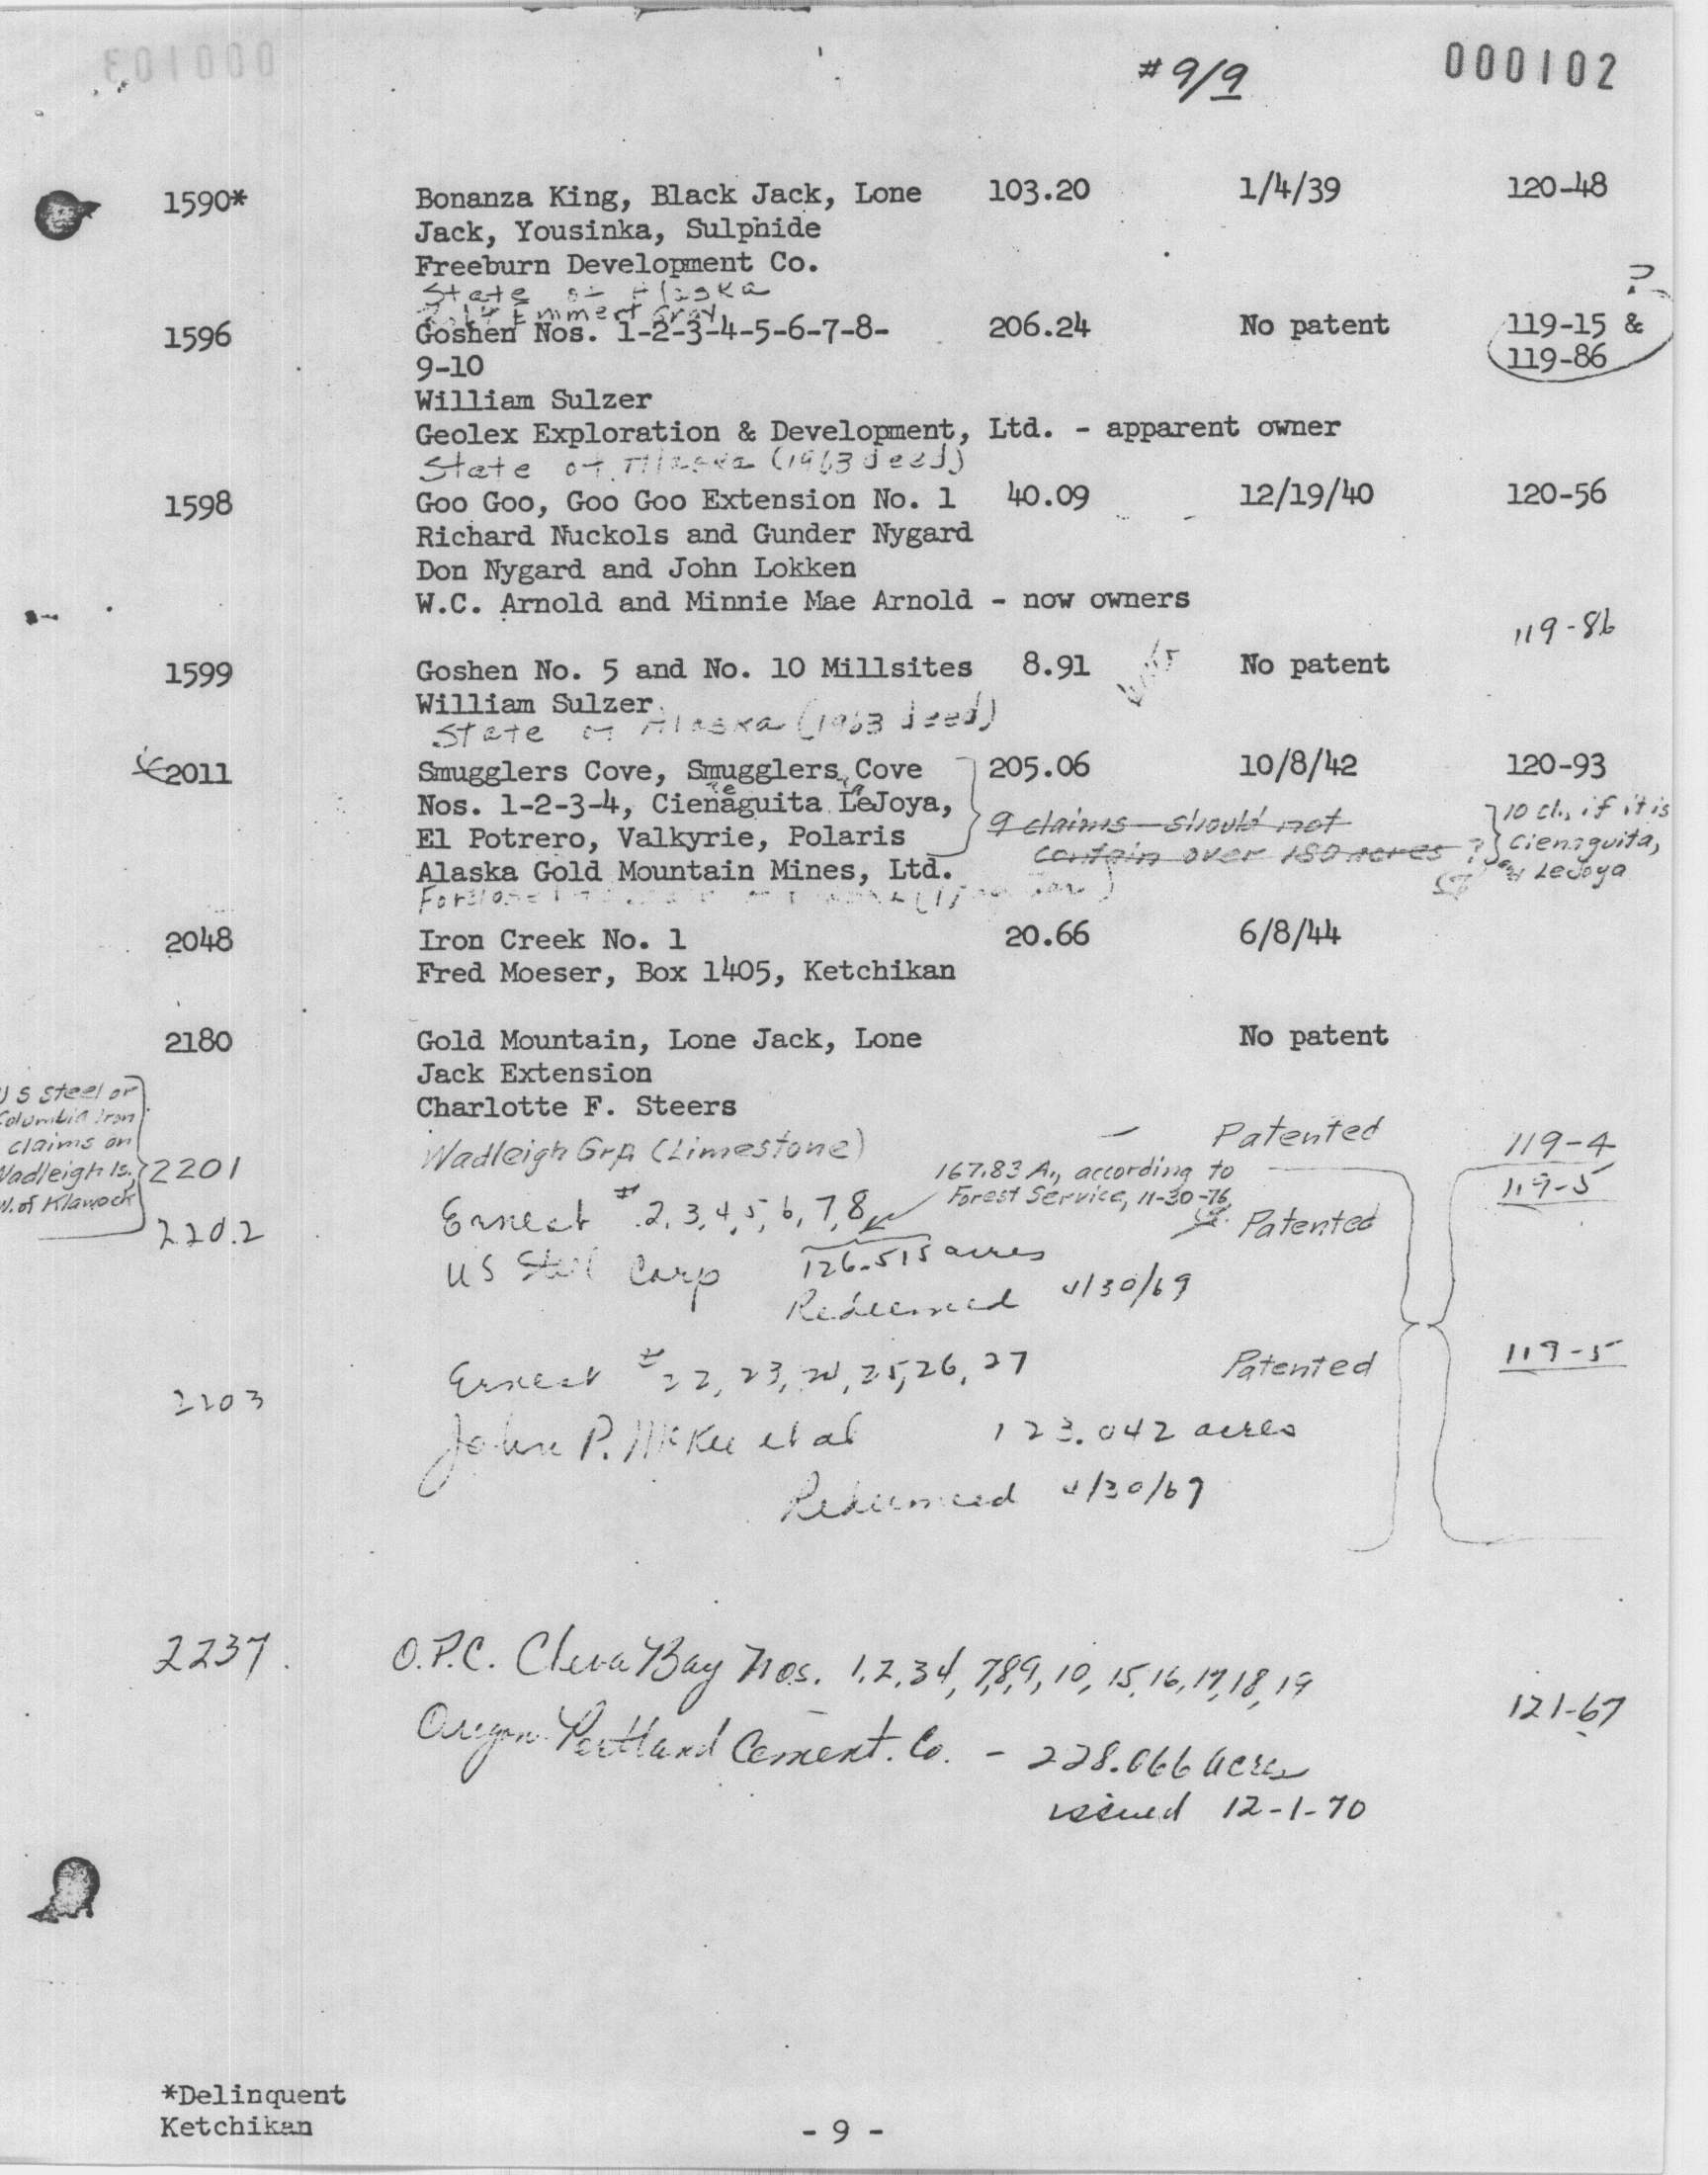 #9/9 000102
1590* Bonanza King, Black Jack, Lone 103.20 1/4/39 120-48
Jack, Yousinka, Sulphide
Freeburn Development Co.
State of Alaska
Emmert Gray ?
1596 Goshen Nos. 1-2-3-4-5-6-7-8- 206.24 No patent 119-15 &
9-10 119-86
William Sulzer
Geolex Exploration & Development, Ltd. - apparent owner
State of Alaska (1963 deed)
1598 Goo Goo, Goo Goo Extension No. 1 40.09 12/19/40 120-56
Richard Nuckols and Gunder Nygard
Don Nygard and John Lokken
W.C. Arnold and Minnie Mae Arnold - now owners
119-86
1599 Goshen No. 5 and No. 10 Millsites 8.91 No patent
William Sulzer
State of Alaska (1963 deed)
*2011 Smugglers Cove, Smugglers Cove 205.06 10/8/42 120-93
Nos. 1-2-3-4, Cienaguita LeJoya,
9 claims - should not
10 cl., if it is
El Potrero, Valkyrie, Polaris
contain over 180 acres ?
Cieneguita,
Alaska Gold Mountain Mines, Ltd.
LeJoya
2048 Iron Creek No. 1 20.66 6/8/44
Fred Moeser, Box 1405, Ketchikan
2180 Gold Mountain, Lone Jack, Lone No patent
Jack Extension
Charlotte F. Steers
U S Steel or
Columbia Iron
claims on
Wadleigh Is.,
W. of Klawock
2201 Wadleigh Grp. (Limestone) - Patented 119-4
167.83 A., according to
Forest Service, 11-30-76
119-5
2202 Ernest # 2, 3, 4, 5, 6, 7, 8 Patented
US Steel Corp 126.515 acres
Redeemed 4/30/69
2203 Ernest # 22, 23, 24, 25, 26, 27 Patented 119-5
John P. McKee et al 123.042 acres
Redeemed 4/30/69
2237. O.P.C. Cleva Bay Nos. 1, 2, 3 4, 7, 8, 9, 10, 15, 16, 17, 18, 19
121-67
Oregon Portland Cement. Co. - 228.066 acres
issued 12-1-70
*Delinquent
Ketchikan
- 9 -